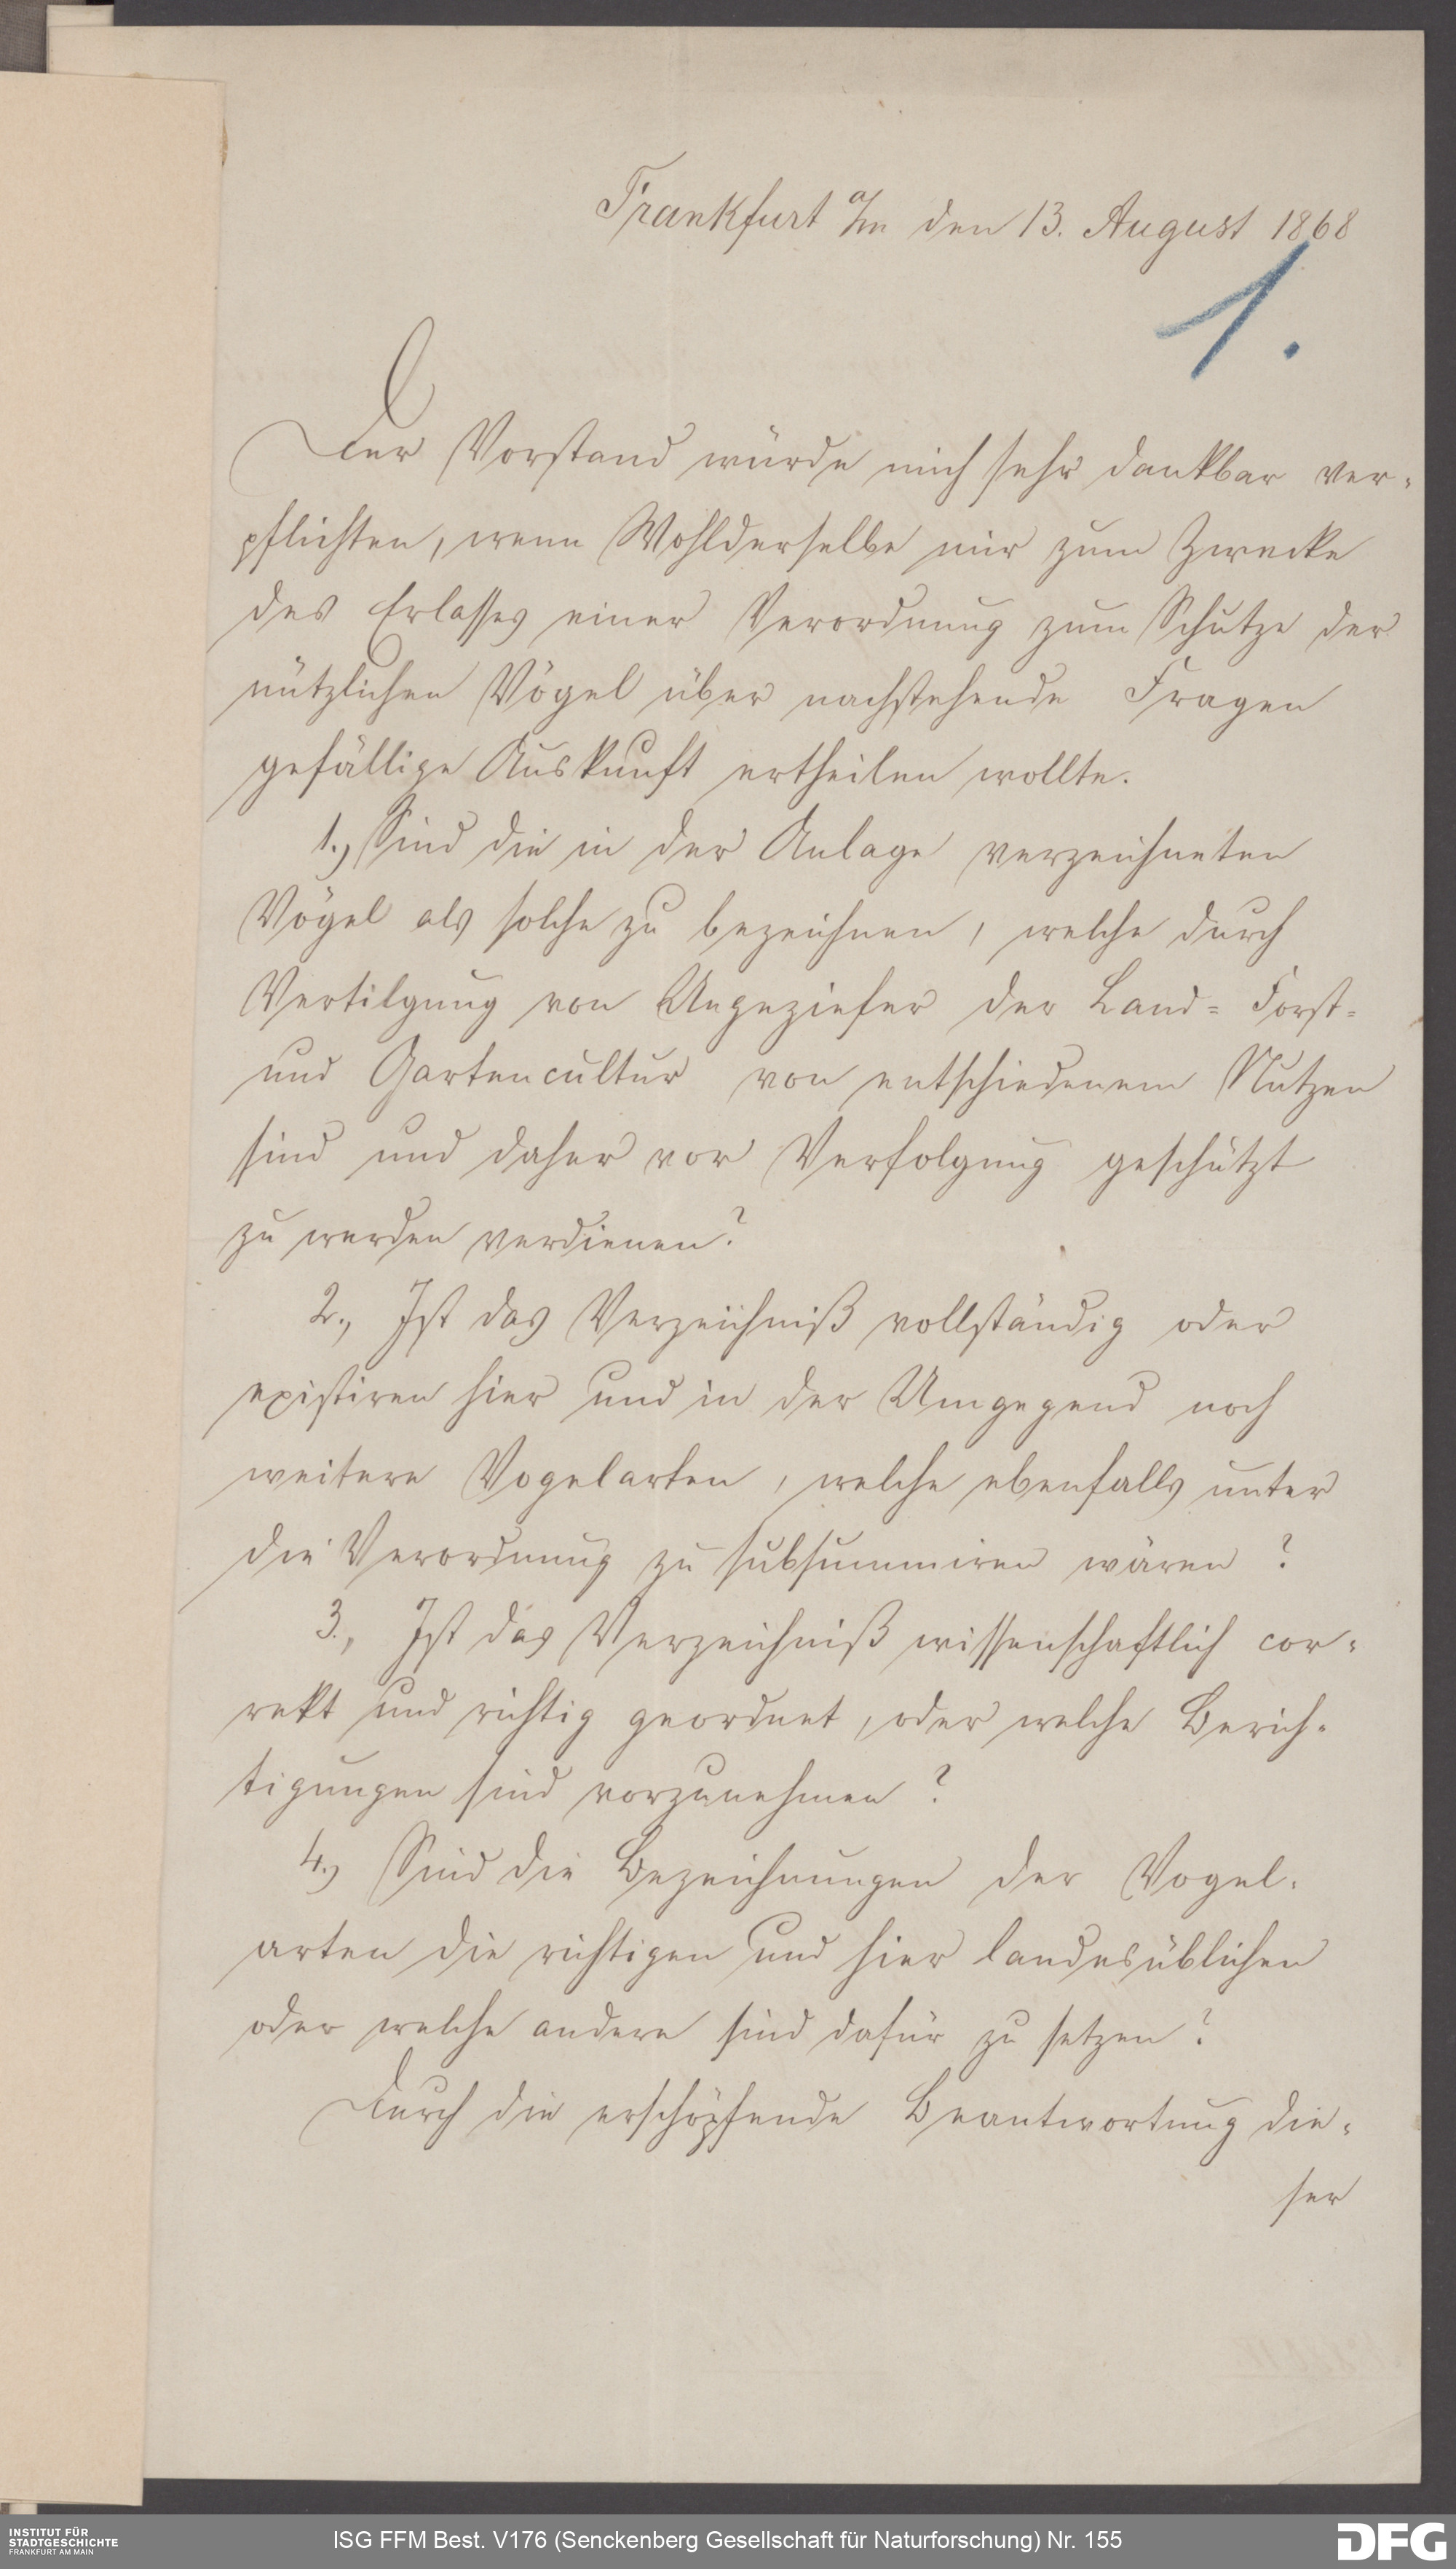 Frankfurt a/m den 13. August 1868
1.
Der Vorstand würde mich sehr dankbar ver-
pflichten, wenn Wohlderselbe mir zum Zwecke
des Erlasses einer Verordnung zum Schutze der
nützlichen Vögel über nachstehende Fragen
gefällige Auskunft ertheilen wollte.
1., Sind die in der Anlage verzeichneten
Vögel als solche zu bezeichnen, welche durch
Vertilgung von Ungeziefer der Land- Forst-
und Gartencultur von entschiedenem Nutzen
sind und daher vor Verfolgung geschützt
zu werden verdienen?
2., Ist das Verzeichniß vollständig oder
existiren hier und in der Umgegend noch
weitere Vogelarten, welche ebenfalls unter
die Verordnung zu subsummiren wären?
3., Ist das Verzeichniß wissenschaftlich cor-
rekt und richtig geordnet, oder welche Berich-
tigungen sind vorzunehmen?
4., Sind die Bezeichnungen der Vogel-
arten die richtigen und hier landesüblichen
oder welche andere sind dafür zu setzen?
Durch die erschöpfende Beantwortung die-
ser
INSTITUT FÜR
STADTGESCHICHTE
FRANKFURT AM MAIN
ISG FFM Best. V176 (Senckenberg Gesellschaft für Naturforschung) Nr. 155
DFG